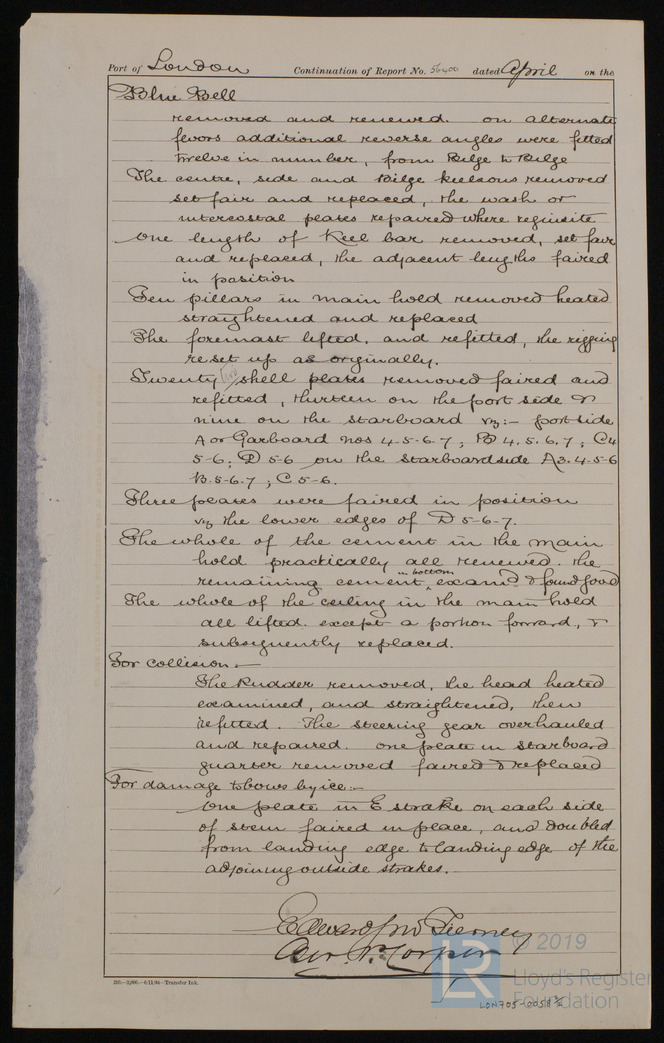 Port of London Continuation of Report No. 56400 dated April on the
Blue Bell
removed and renewed. on alternate
fevors additional reverse angles were fitted
twelve in number, from Bilge to Bilge
The centre, side and Bilge keelsons removed
set fair and replaced, the wash or
intercostal plates repaired where requisite
One length of Keel bar removed, set fair
and replaced, the adjacent lengths faired
in position
Ten pillars in main hold removed heated
straightened and replaced
The foremast lifted, and refitted, the rigging
reset up as originally.
Twenty two shell plates removed faired and
refitted, thirteen on the port side &
nine on the starboard viz:- port side
A or Garboard nos 4-5-6-7; B 4.5.6.7; C4
5-6; D 5-6 on the starboard side A3.4-5-6
B.5-6.7; C5-6.
Three plates were faired in position
viz the lower edges of D 5-6-7.
The whole of the cement in the main
hold practically all renewed. the
remaining cement in bottom examd & found good
The whole of the ceiling in the main hold
all lifted. except a portion forward, &
subsequently replaced.
For collision -
The Rudder removed, the head heated
examined, and straightened, then
refitted. The steering gear overhauled
and repaired. one plate in starboard
quarter removed faired & replaced
For damage to bows by ice:-
One plate in E strake on each side
of stem faired in place, and doubled
from landing edge to landing edge of the
adjoining outside strakes.
Edward Jno Tierney
2m.-3,000.-6/11/94-Transfer Ink.
LR © 2019
Lloyd's Register
Foundation
LON705-0058